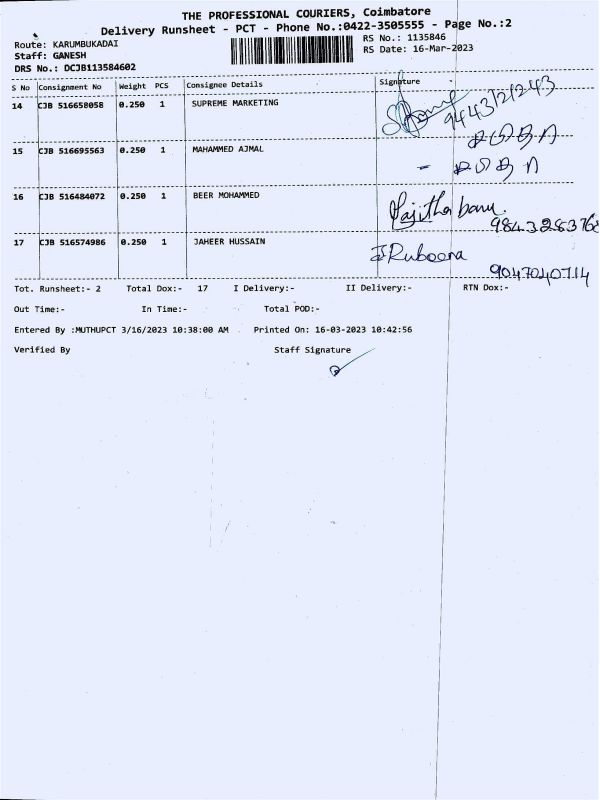 THE PROFESSIONAL COURIERS, Coimbatore
Delivery Runsheet - PCT - Phone No.:0422-3505555 - Page No.:2
Route: KARUMBUKADAI
RS No.: 1135846
Staff: GANESH
RS Date: 16-Mar-2023
DRS No.: DCJB113584602
S No Consignment No Weight PCS Consignee Details Signature
14 CJB 516658058 0.250 1 SUPREME MARKETING
9443121243
15 CJB 516695563 0.250 1 MAHAMMED AJMAL
16 CJB 516484072 0.250 1 BEER MOHAMMED Rajitha banu.
9843283768
17 CJB 516574986 0.250 1 JAHEER HUSSAIN J Rubeena
9047040714
Tot. Runsheet:- 2 Total Dox:- 17 I Delivery:- II Delivery:- RTN Dox:-
Out Time:- In Time:- Total POD:-
Entered By :MUTHUPCT 3/16/2023 10:38:00 AM Printed On: 16-03-2023 10:42:56
Verified By Staff Signature